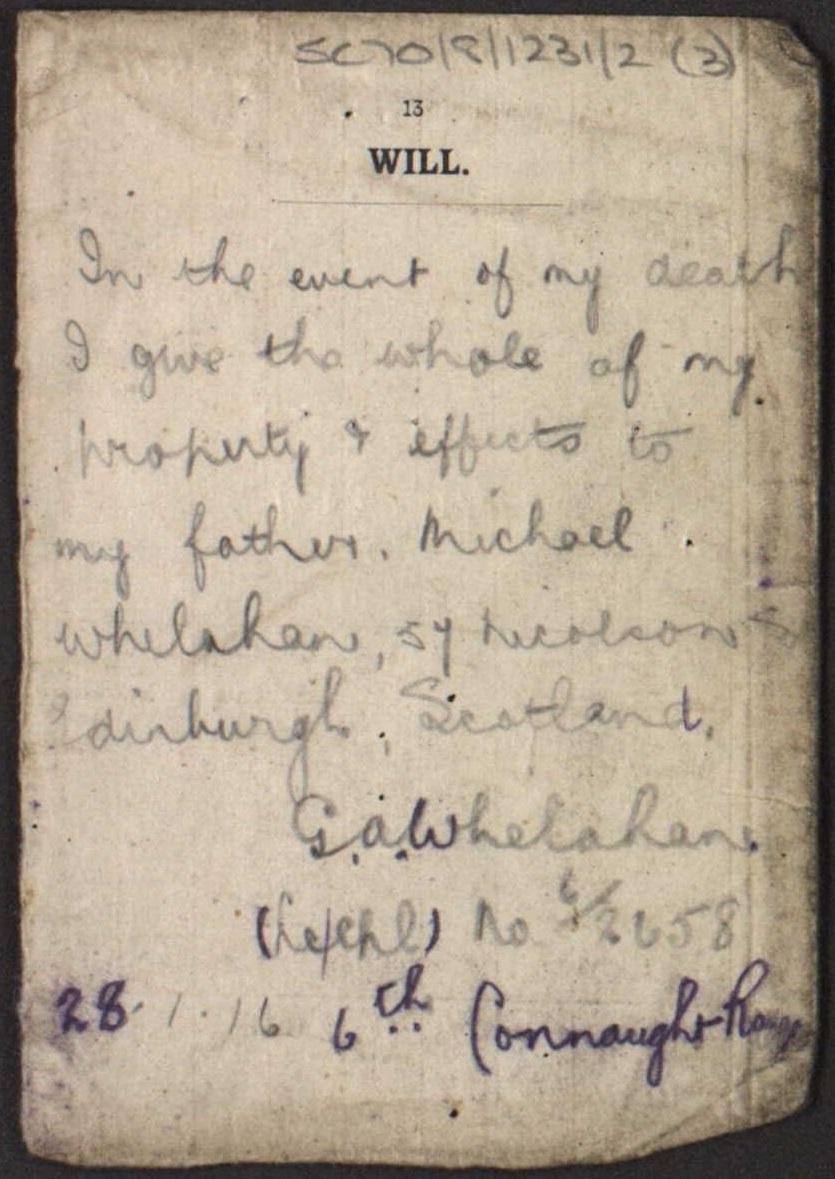 SC70/8/1231/2 (3)
13
WILL.
In the event of my death
I give the whole of my
property & effects to
my father. Michael
Whelahan, 57 Nicolson S
Edinburgh, Scotland.
G.A.Whelahan.
No 6/2658
28.1.16 6th Connaught Rang